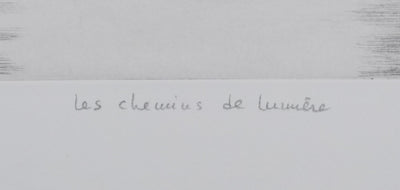 Les chemins de lumière